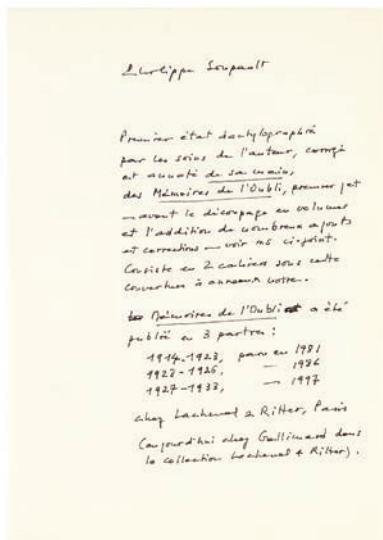 Philippe Soupault
Premier état dactylographié
par les soins de l'auteur, corrigé
et annoté de sa main,
des Mémoires de l'Oubli, premier jet
— avant le découpage en volumes
et l'addition de nombreux ajouts
et corrections — voir ms ci-joint.
Consiste en 2 cahiers sous cette
couverture à anneaux noire.
Mémoires de l'Oubli a été
publié en 3 parties :
1914-1923, paru en 1981
1923-1926, — 1986
1927-1933, — 1997
chez Lachenal & Ritter, Paris
(aujourd'hui chez Gallimard dans
la collection Lachenal & Ritter).